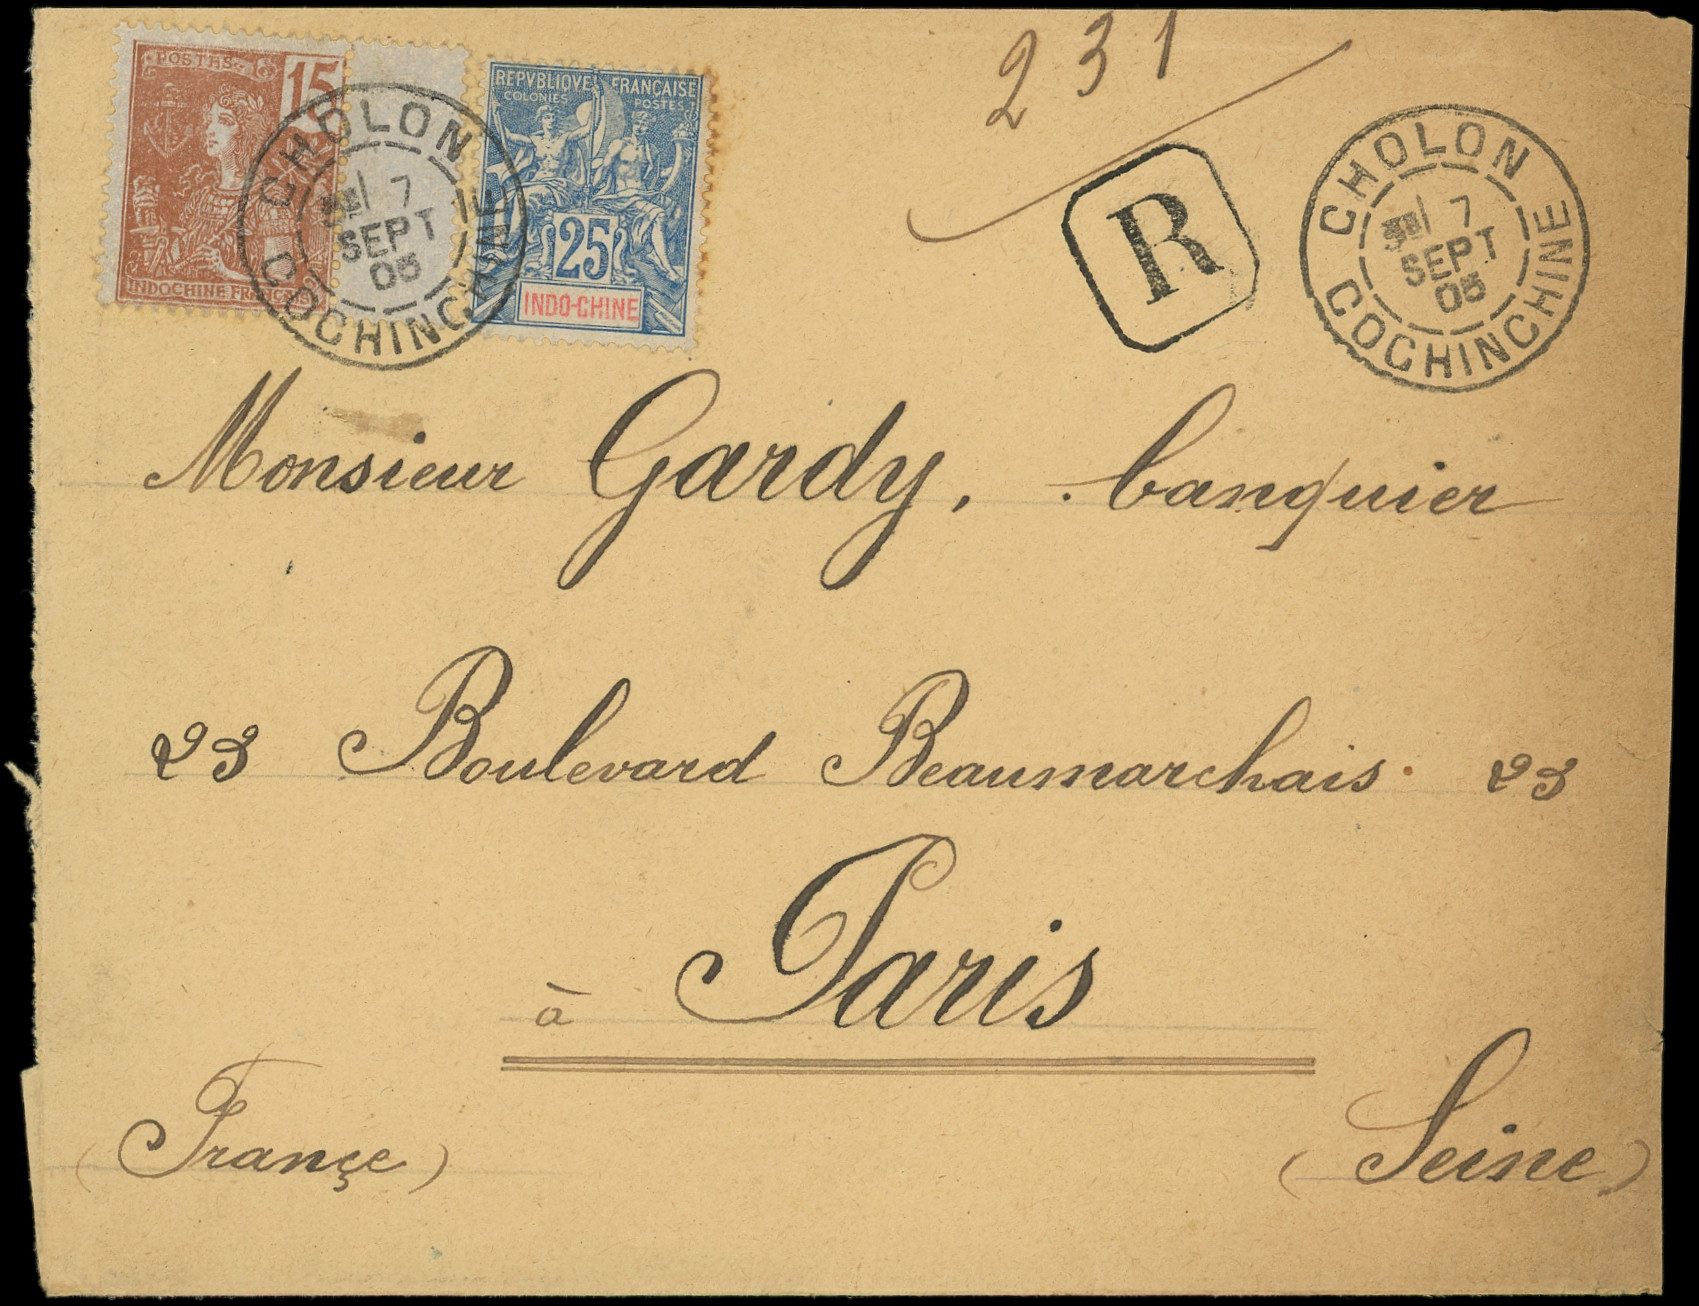 231
POSTES
15
INDOCHINE FRANÇAISE
REPVBLIQVE FRANÇAISE
COLONIES POSTES
25
INDO-CHINE
CHOLON
7
SEPT
05
COCHINCHINE
R
CHOLON
7
SEPT
05
COCHINCHINE
Monsieur Gardy, banquier
23 Boulevard Beaumarchais 23
à Paris
(Françe) (Seine)